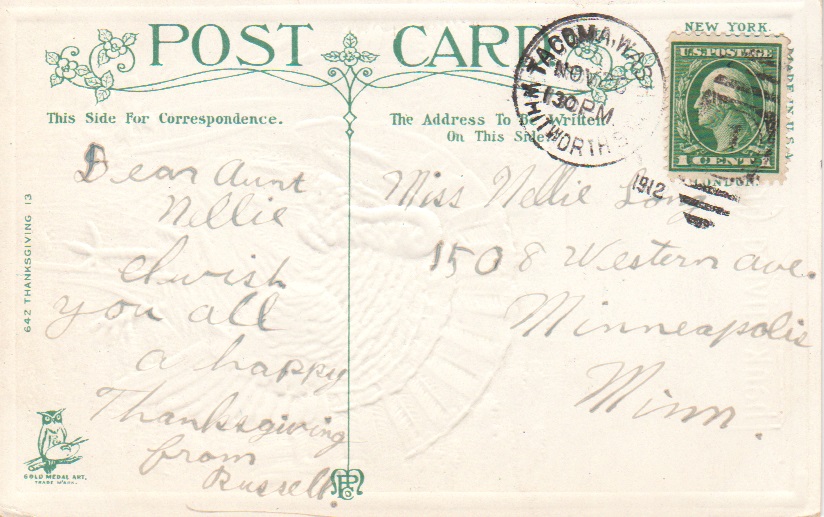 POST CARD
NEW YORK.
MADE IN U.S.A.
LONDON.
This Side For Correspondence.
The Address To Be Written
On This Side.
TACOMA, WASH.
NOV
130 PM
WHITWORTH
1912
U.S. POSTAGE
1 CENT 1
Dear Aunt
Nellie
I wish
you all
a happy
Thanksgiving
from
Russell.
Miss Nellie Long
1508 Western ave.
Minneapolis
Minn.
642 THANKSGIVING 13
GOLD MEDAL ART.
TRADE MARK.